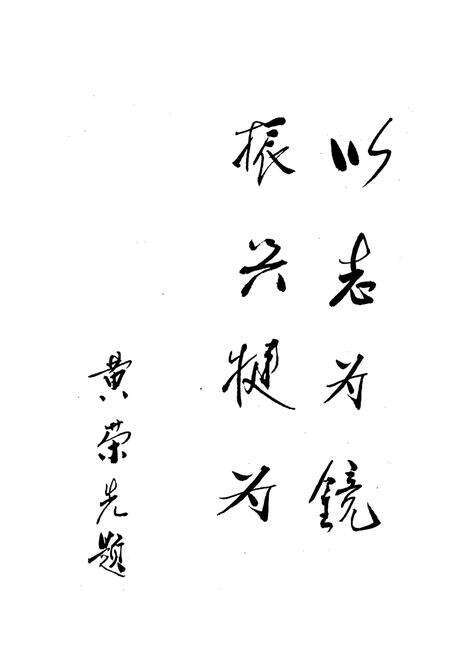 以志为镜
振兴犍为
黄荣先题